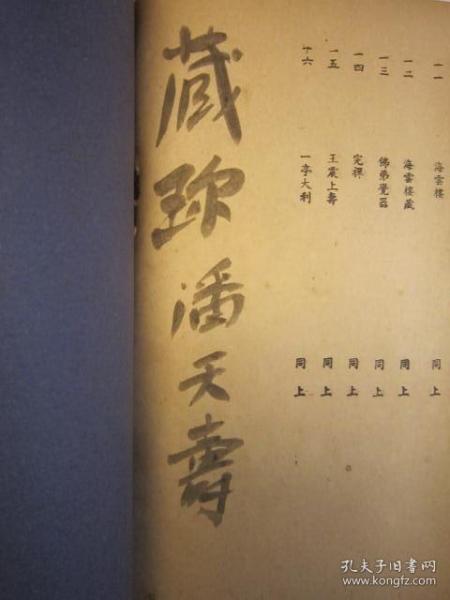 一一 海雲樓 同上
一二 海雲樓藏 同上
一三 佛弟覺器 同上
一四 同上
一五 王震上壽 同上
十六 一亭大利 同上
蔵珎潘天壽
孔夫子旧书网
www.kongfz.com